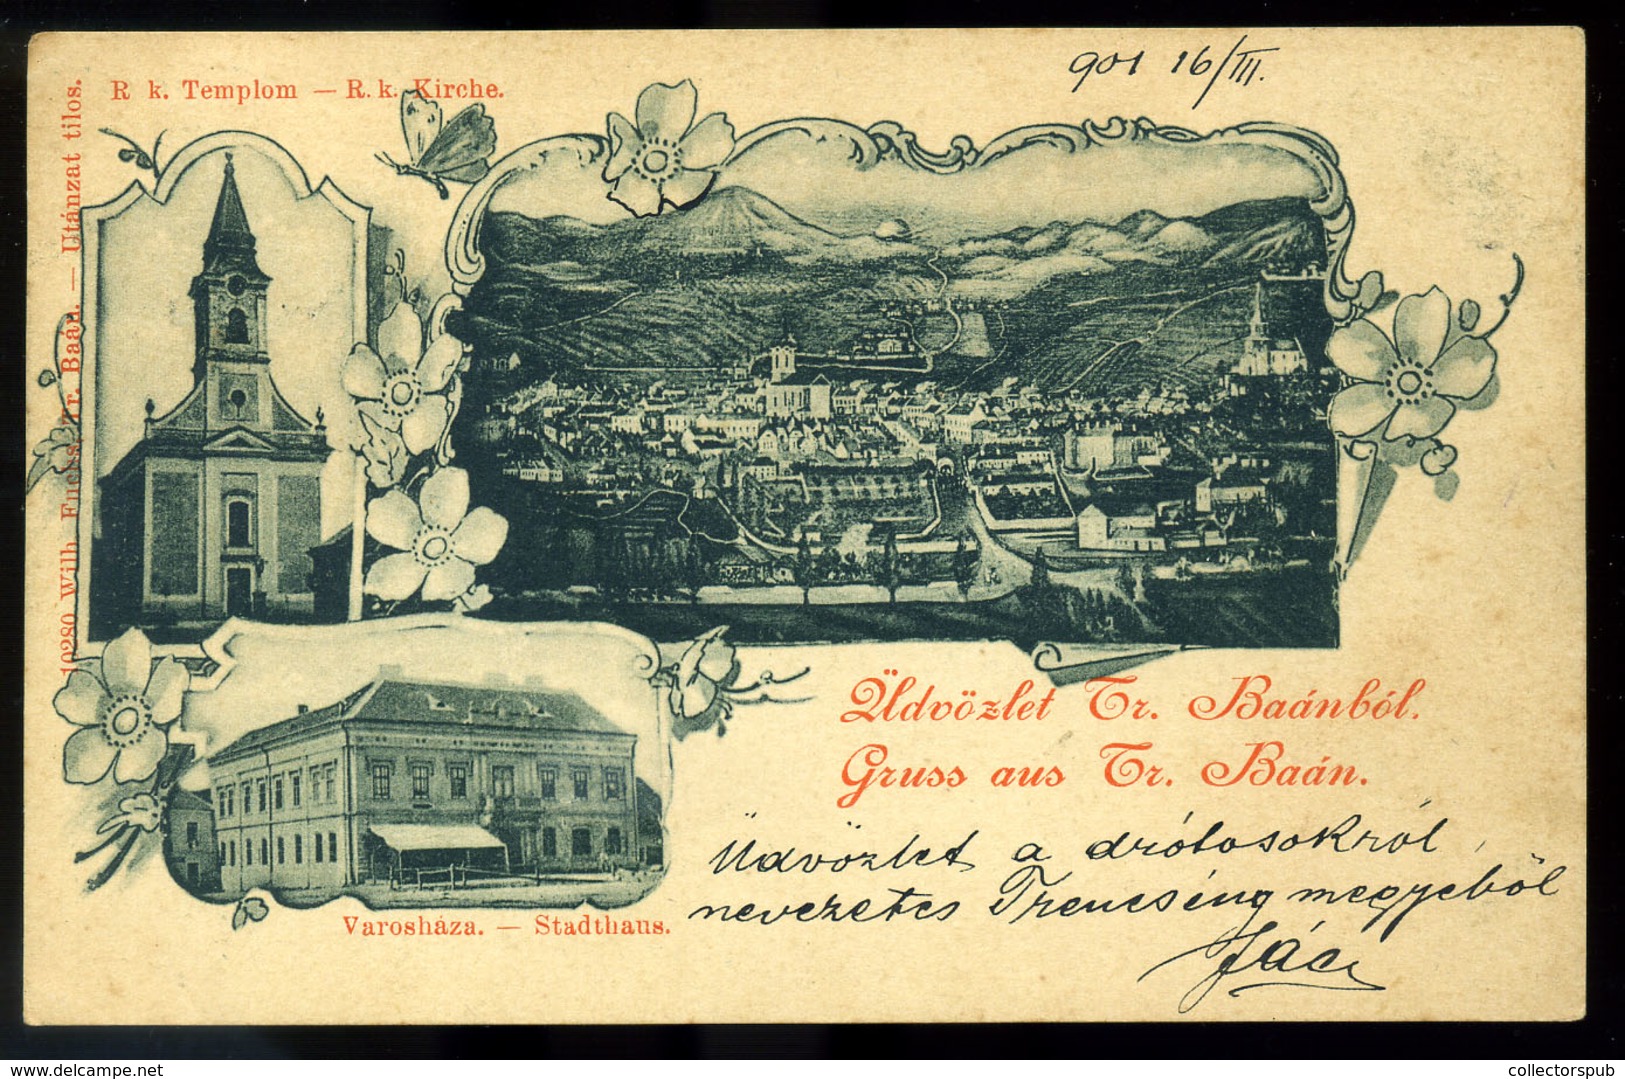 901 16/III.
R k. Templom — R. k. Kirche.
10280 Wilh. Fuchs, Tr. Baán. — Utánzat tilos.
Üdvözlet Tr. Baánból.
Gruss aus Tr. Baán.
Üdvözlet a drótosokról
nevezetes Trencséng megyeböl
Varosháza. — Stadthaus.
delcampe.net
collectorspub